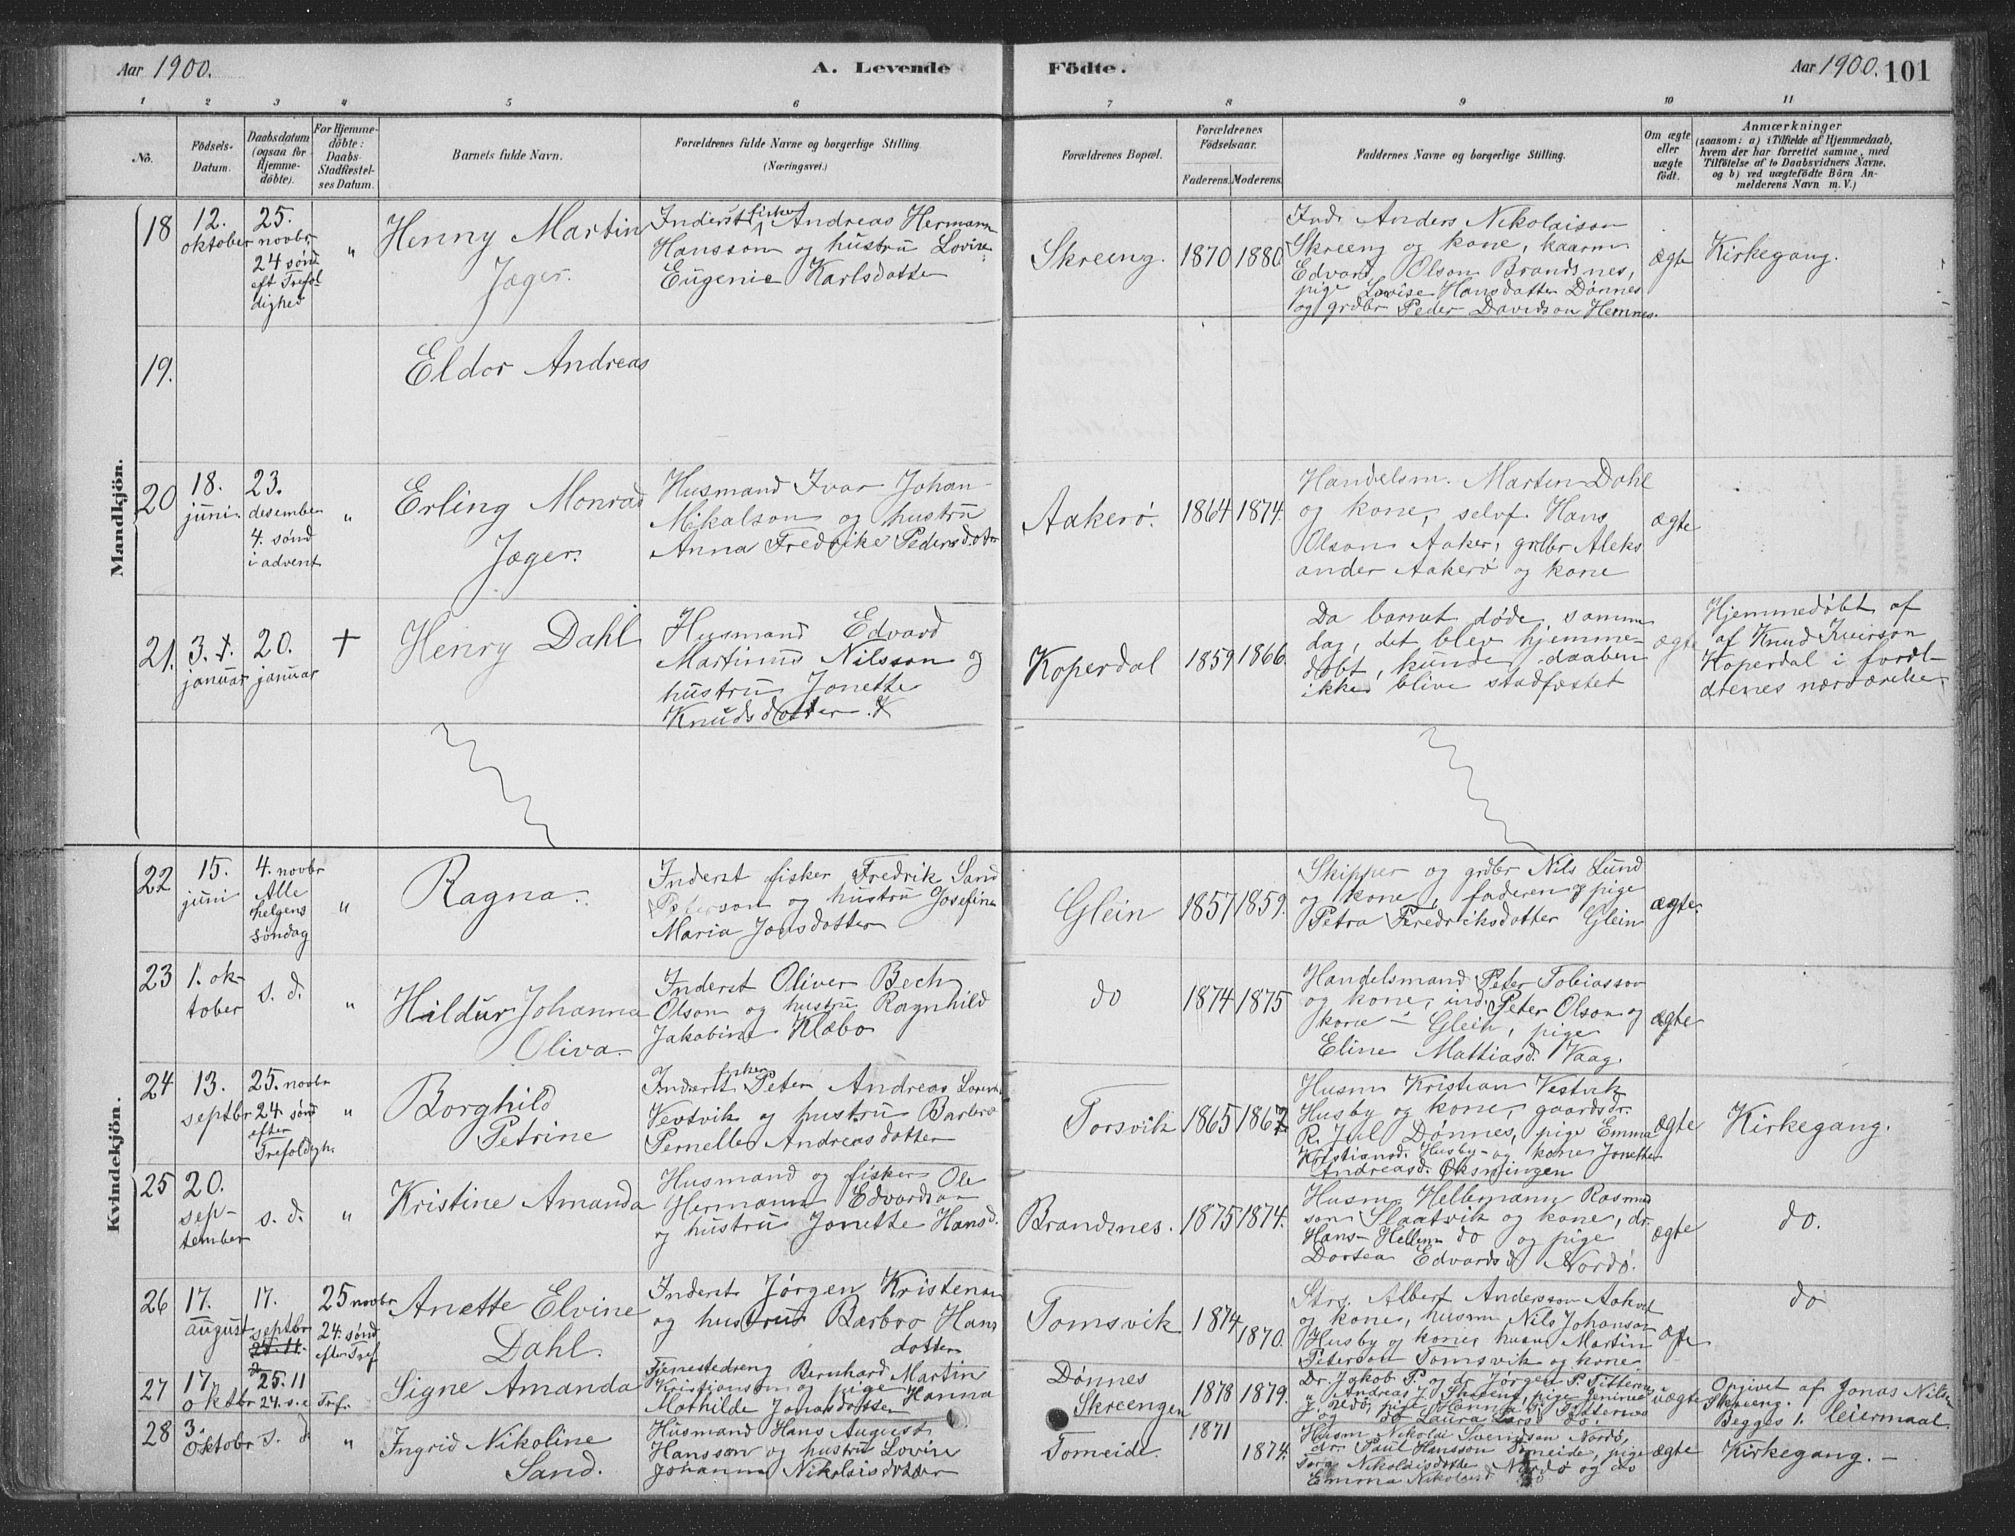 Aar 1900.
A. Levende
Födte.
Aar 1900. 101
1 2 3 4 5 6 7 8 9 10 11
No.
Födsels-Datum.
Daabsdatum (ogsaa for Hjemmedöbte).
For Hjemmedöbte: Daabs-Stadfæstelses Datum.
Barnets fulde Navn.
Forældrenes fulde Navne og borgerlige Stilling.
(Næringsvei.)
Forældrenes Bopæl.
Forældrenes Födselsaar.
Faderens. Moderens.
Faddernes Navne og borgerlige Stilling.
Om ægte eller uægte födt.
Anmærkninger
(saasom: a) i Tilfælde af Hjemmedaab, hvem der har forrettet samme, med Tilföielse af to Daabsvidners Navne, og b) ved uægtefödte Börn Anmelderens Navn m. V.)
Mandkjön.
18
12. oktober
25. novbr 24 sønd eft Trefoldighed
"
Henny Martin
Jæger.
Inderst fisker Andreas Hermann
Hansson og hustru Lovise
Eugenie Karlsdatter
Skreeng.
1870 1880
Ind. Anders Nikolaison
Skreeng og kone, kaarm
Edvard Olson Brandsnes,
pige Lovise Hansdatter Dønnes
og grdbr Peder Davidson Hemnes.
ægte
Kirkegang.
19.
Eldor Andreas
20
18. juni
23. desember 4. sønd i advent
"
Erling Monrad
Jæger.
Husmand Ivar Johan
Mikalson og hustru
Anna Fredrike Pedersdotter
Aakerø.
1864 1874.
Handelsm. Martin Dahl
og kone, selvf. Hans
Olson Aaker, grdbr Aleks
ander Aakerø og kone
ægte
21.
3. januar
20. januar
+
Henry Dahl
Husmand Edvard
Martinus Nilsson og
hustru Jonette
Knudsdotter
Koperdal
1859 1866.
Da barnet døde samme
dag, det blev hjemme-
døbt, kunde daaben
ikke blive stadfæstet
ægte
Hjemmedøbt af
af Knud Iverson
Koperdal i foræl-
drenes nærværelse.
Kvindekjön.
22
15. juni
4. novbr Alle helgens søndag
"
Ragna.
Inderst fisker Fredrik Sand
Peterson og hustru Josefine
Maria Jonsdotter
Glein
1857 1859.
Skipper og grdbr Nils Lund
og kone, faderen og pige
Petra Fredriksdotter Glein
ægte.
23
1. oktober
s. d.
"
Hildur Johanna
Oliva.
Inderst Oliver Bech
Olson og hustru Ragnhild
Jakobine Klæbo
do
1874 1875
Handelsmand Peter Tobiasson
og kone, ind. Peter Olson og
kone - Glein, pige
Eline Mattiasd. Vaag.
ægte
24
13. septbr
25. novbr 24 sønd efter Trefoldigh.
"
Borghild
Petrine
Inderst fisker Peter Andreas
Vestvik og hustru Barbro
Pernelle Andreasdotter
Torsvik
1865 1867
Husm Kristian Vestvik
Husby og kone, gaardsdr.
R. Juul Dønnes, pige Emma
Kristiansd. Husby og kone Jonette
Andreasd. Oksningen
ægte
Kirkegang.
25
20. september
s. d.
"
Kristine Amanda
Husmand og fisker Ole
Hermann Edvardson
og hustru Jonette Hansd.
Brandsnes.
1875 1874.
Husm Hellemann Rasmus
son Slaatvik og kone, dr.
Hans Hellem do og pige
Dortea Edvardsd Nordø.
ægte
do.
26
17. august
17. septbr
25 novbr 24. sønd efter Tref
Anette Elvine
Dahl.
Inderst Jørgen Kristenson
og hustru Barbro Hans
dotter
Tomsvik
1874 1870.
Strs. Albert Andersson Aakvik
og kone, husm Nils Johanson
Husby og kone, husm Martin
Peterson Tomsvik og kone
do
27
17. oktbr
25.11 24. s. e. Tref.
Signe Amanda
Tjenestedreng Bernhard Martin
Kristianson og pige Hanna
Mathilde Jonasdotter
Dønnes
Skreengen
1878 1879.
uægte
Opgivet af Jonas Nilsen
Skreeng.
Begges 1. leiermaal
28
3. Oktobr
s. d
"
Ingrid Nikoline
Sand.
Husmand Hans August
Hansson og hustru Lovise
Johanna Nikolaisdotter
Tomeide.
1871 1874.
Husm Nikolai Svendson Nordø,
dr. Paul Hansson Tomeide, pige
Nikolaisdotter Nordø og do
Emma Nikolaisd do
ægte
Kirkegang. -